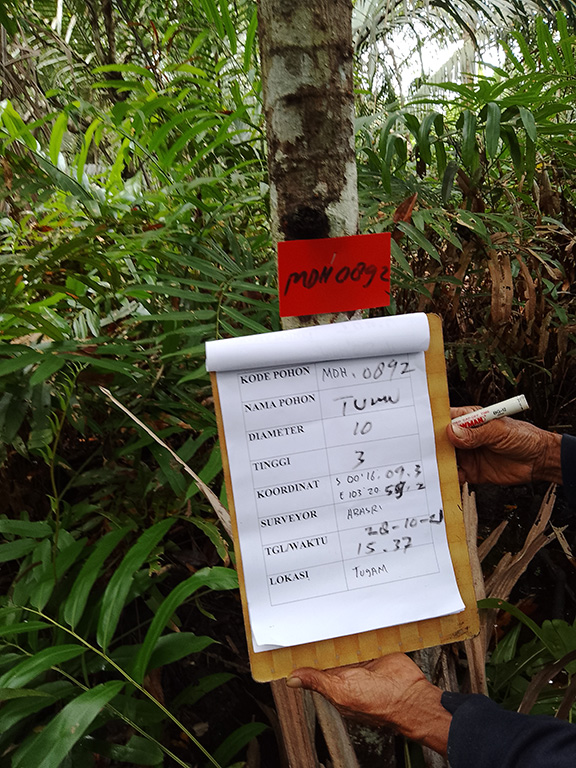 MDH 0892
KODE POHON MDH. 0892
NAMA POHON
DIAMETER 10
TINGGI 3
KOORDINAT S 00°16.09.3
E 103 20 59.2
SURVEYOR ABASRI
TGL/WAKTU 28-10-21
15.37
LOKASI TUGAM